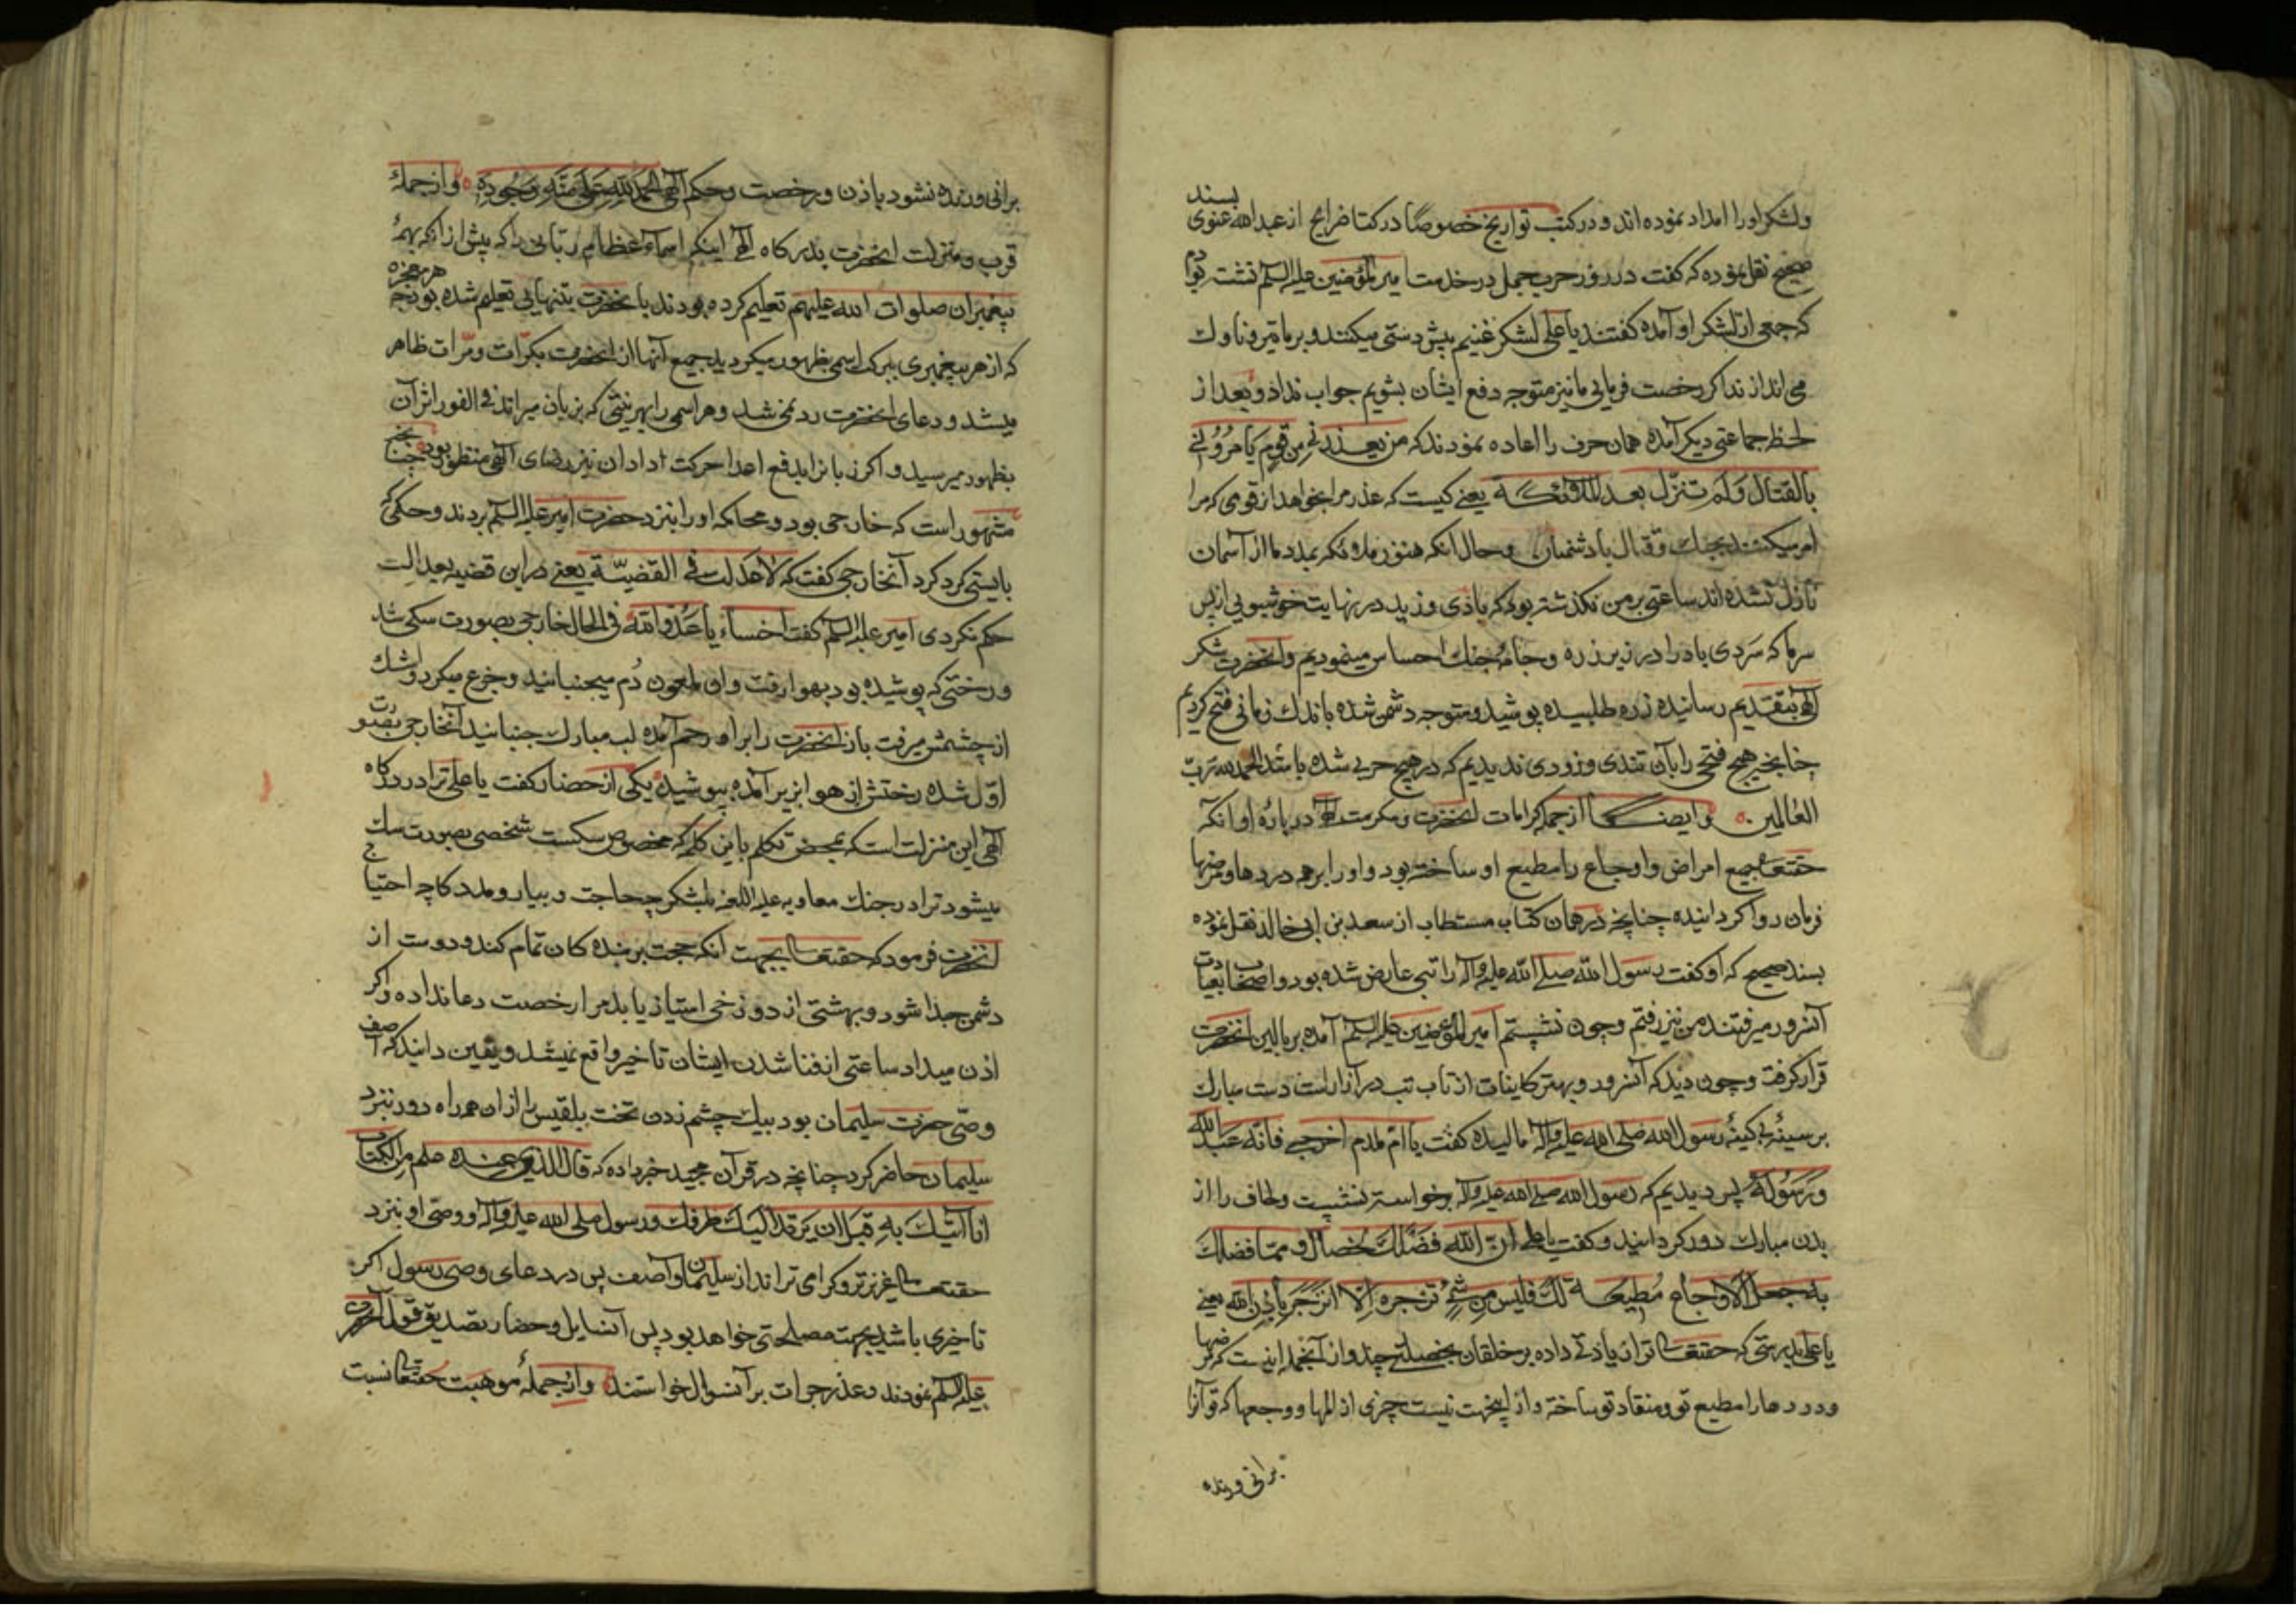 ولشکر اورا امداد نموده اند و در کتب تواریخ خصوصًا در کتاب خرایج از عبدالله عنوی بسند
صحیح نقل نموده که گفت در روز حرب جمل در خدمت امیرالمؤمنین علیه السلم نشسته بودم
که جمعی از لشکر او آمده کفتند یا علی لشکر غنیم پیش دستی میکنند و بر ما تیر و ناوك
می اندازند اکر رخصت فرمایی ما نیز متوجه دفع ایشان بشویم جواب نداد و بعد از
لحظه جماعتی دیکر آمده همان حرف را اعاده نمودند که من یعذرنی من قوم یامرونی
بالقتال ولم تنزل بعد الملائکة یعنی کیست که عذر مرا بخواهد از قومی که مرا
امر میکنند بجنك و قتال با دشمنان و حال انکه هنوز ملائکه بمدد ما از آسمان
نازل نشده اند ساعتی بر من نکذشته بود که بادی وزید در نهایت خوشبویی از پس
سر ما که سردی باد را در زیر زره و جامه جنك احساس مینمودیم و انحضرت شکر
الهی بتقدیم رسانیده زره طلبیده پوشید و متوجه دشمن شده باندك زمانی فتح کردیم
چنانچه هیچ فتحی را بآن تندی و زودی ندیدیم که در هیچ حربی شده باشد الحمد لله رب
العالمین وایضا از جمله کرامات انحضرت و مکرمت الهی در باره او انکه
حقتعالی جمیع امراض و اوجاع را مطیع او ساخته بود و او را بر همه دردها و مرضها
فرمان روا کردانیده چنانچه در همان کتاب مستطاب از سعد بن ابی خالد نقل نموده
بسند صحیح که او کفت رسول الله صلی الله علیه وآله را تبی عارض شده بود و اصحاب بعیادت
آنسرور میرفتند من نیز رفتم و چون نشستم امیرالمؤمنین علیه السلم آمده بر بالین انحضرت
قرار کرفت و چون دید که آنسرور و بهتر کاینات از تاب تب در آزار است دست مبارك
بر سینه بی کینه رسول الله صلی الله علیه وآله مالیده کفت یا ام ملدم اخرجی فانه عبد الله
ورسوله پس دیدیم که رسول الله صلی الله علیه وآله برخواسته نشست و لحاف را از
بدن مبارك دور کردانید و کفت یا علی ان الله فضلك بخصال و مما فضلك
به جعل الاوجاع مطیعة لك فلیس من شئ تزجره الا انزجر باذن الله یعنی
یا علی بدرستی که حقتعالی ترا زیادتی داده بر خلقان بخصلتی چند و از آنجمله اینست که مرضها
و دردها را مطیع تو و منقاد تو ساخته و از اینجهت نیست چیزی از المها و وجعها که تو آنرا
برانی ورنده
برانی ورنده نشود باذن و رخصت و حکم الهی الحمد لله وازجمله
قرب و منزلت انحضرت بدرکاه الهی اینکه اسماء عظام ربانی را که پیش از انکه بهمه
پیغمبران صلوات الله علیهم تعلیم کرده بودند بانحضرت بتنهایی تعلیم شده بود هر معجزه
که از هر پیغمبری ببرکت اسمی بظهور میکردید جمیع آنها از انحضرت بکرات و مرات ظاهر
میشد و دعای انحضرت رد نمی شد و هر اسمی را بهر نیتی که بزبان میراند فی الفور اثر آن
بظهور میرسید و اکر زبانرا بدفع اعدا حرکت ندادی ان نیز رضای الهی منظور بود چنانچه
مشهور است که خارجی بود و محاکمه او را بنزد حضرت امیر علیه السلم بردند و حکمی که
بایستی کرد کرد آنخارجی کفت که لا عدلت فی القضیة یعنی در این قضیه بعدالت
حکم نکردی امیر علیه السلم کفت اخساء یا عدو الله فی الحال خارجی بصورت سکی شد
و رختی که پوشیده بود بهوا رفت و ان ملعون دُم میجنبانید و جزع میکرد و اشك
از چشمش میرفت باز انحضرت را بر او رحم آمده لب مبارك جنبانید آنخارجی بصورت
اول شده رختش از هوا بزیر آمده پوشیده یکی از حضار کفت یا علی ترا در درکاه
الهی این منزلت است که بمحض تکلم باین کلمه که مخصوص سکست شخصی بصورت سك
میشود ترا در جنك معاویه علیه اللعنه بلشکر چه حاجت و بیار و مددکار چه احتیاج
انحضرت فرمود که حقتعالی بجهت انکه حجت بر بنده کان تمام کند و دوست از
دشمن جدا شود و بهشتی از دوزخی امتیاز یابد مرا رخصت دعا نداده و اکر
اذن میداد ساعتی از فنا شدن ایشان تاخیر واقع نمیشد و یقین دانید که آصف
وصی حضرت سلیمان بود بیك چشم زدن تخت بلقیس را از ان همه راه دور نزد
سلیمان حاضر کرد چنانچه در قرآن مجید خبر داده که قال الذی عنده علم من الکتاب
انا آتیك به قبل ان یرتد الیك طرفك و رسول صلی الله علیه وآله و وصی او نزد
حقتعالی عزیزتر و کرامی تر اند از سلیمان و آصف پس در دعای وصی رسول اکر
تاخیری باشد بجهت مصلحتی خواهد بود پس آنسایل و حضار تصدیق قول آنحضرت
علیه السلم نمودند و عذر جرات بر آنسوال خواستند وازجمله موهبت حقتعالی نسبت